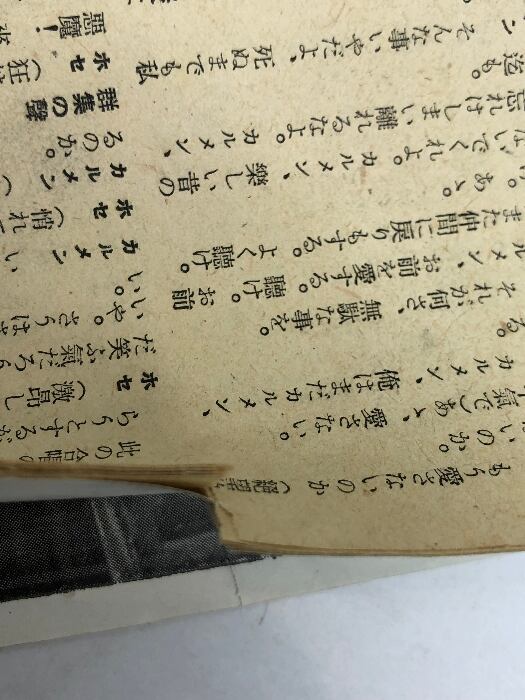 もう愛さないのか（絶望
いのか。
氣であゝ、愛さない。
カルメン、俺はまだカルメン、
る。
それが何さ、無駄な事を。
ルメン、お前を愛する。聽け。お前
また仲間に戾りもする。よく聽け。
。あゝ。
ないでくれよ。カルメン、樂しい昔の
忘れはしまい離れるなよ。
迄も。
そんな事いやだよ、死ぬまでも私
ン
此の合唱の
らうとするが
ホセ（激昂し
だ笑ふ氣だろう
いゝや。さらばさ
カルメン い
ホセ（
カルメン（
るのか。
群集の聲
ホセ（狂
惡魔！